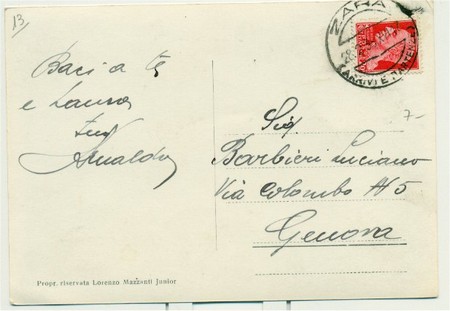 13
Baci a te
e Laura
Arnaldo
ZARA
ARRIVI E PARTENZE
7-
Sig.
Barbieri Luciano
Via Colombo 145
Genova
Propr. riservata Lorenzo Mazzoni Junior